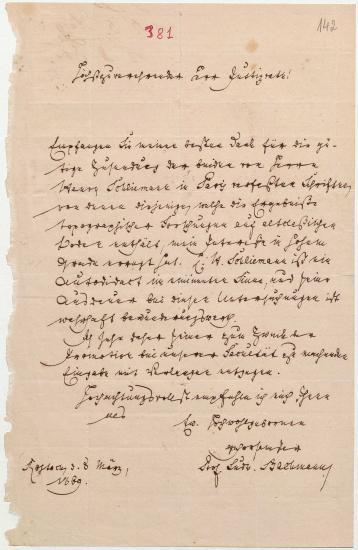 381
142
Hochzuverehrender Herr Justizrath!
Empfangen Sie meinen besten Dank für die gü-
tige Zusendung der beiden von Herrn
Henry Schliemann in Paris verfaßten Schriften,
von denen diejenige, welche die Ergebnisse
topographischer Forschungen auf altclassischem
Boden enthält, mein Interesse in hohem
Grade erregt hat. H. Schliemann ist ein
Autodidact im eminenten Sinne, und seine
Ausdauer bei diesen Untersuchungen ist
wahrhaft bewundernswerth.
Ich sehe daher seiner zum Zwecke der
Promotion bei unserer Facultät zu machenden
Eingabe mit Verlangen entgegen.
Hochachtungsvollst empfehle ich mich Ihnen
als
Ew. Hochwohlgeboren
gehorsamster
Prof. Ludw. Bachmann
Rostock, d. 8 März,
1869.